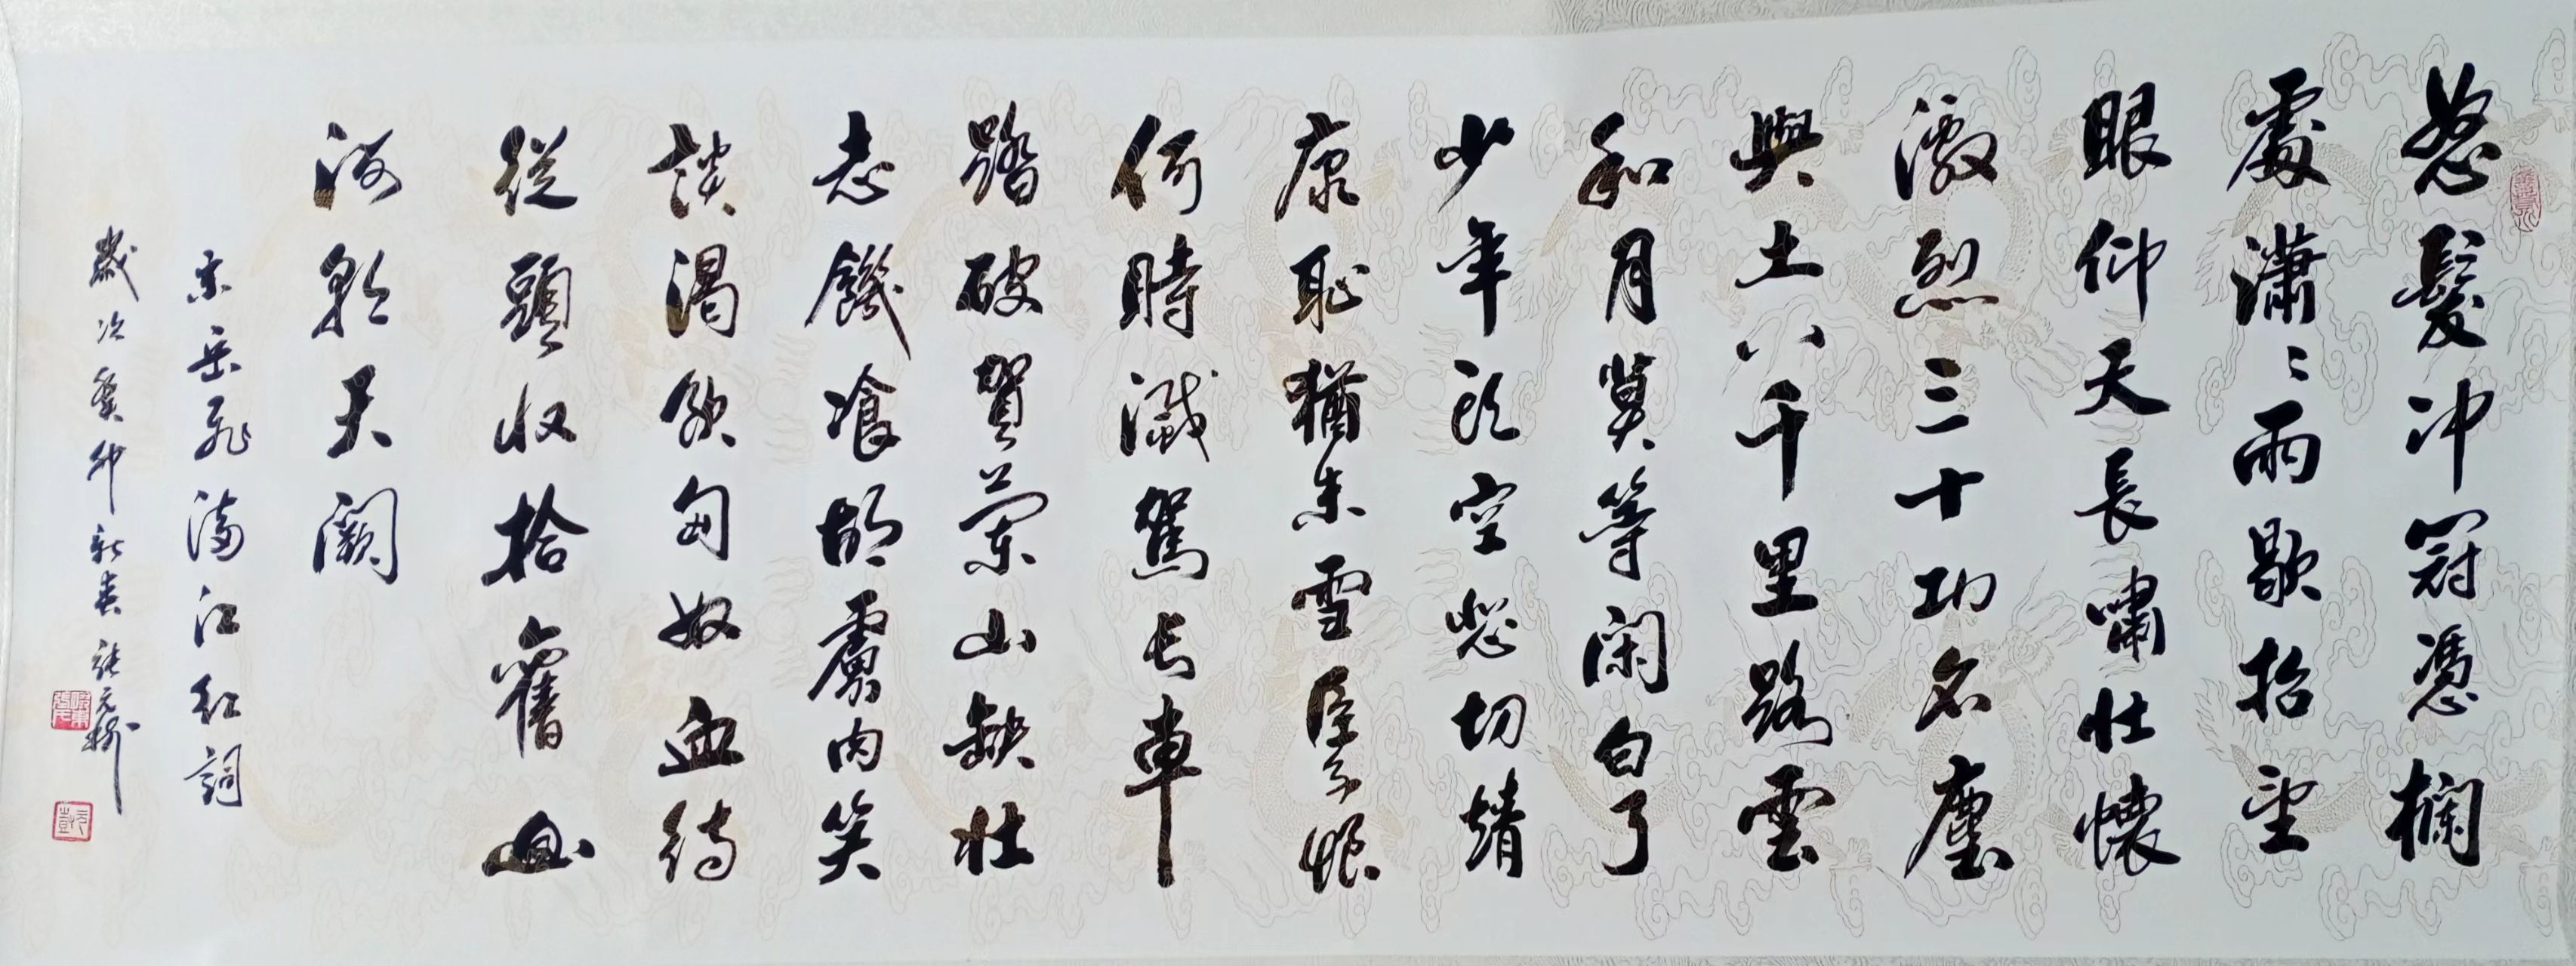 怒髮冲冠憑欄
處瀟〻雨歇抬望
眼仰天長嘯壯懷
激烈三十功名塵
與土八千里路雲
和月莫等闲白了
少年頭空悲切靖
康恥猶未雪臣子恨
何時滅駕长車
踏破賀蘭山缺壯
志饑飡胡虜肉笑
談渴飲匈奴血待
從頭收拾舊山
河朝天闕
宋岳飛滿江红詞
歲次癸卯新春張元